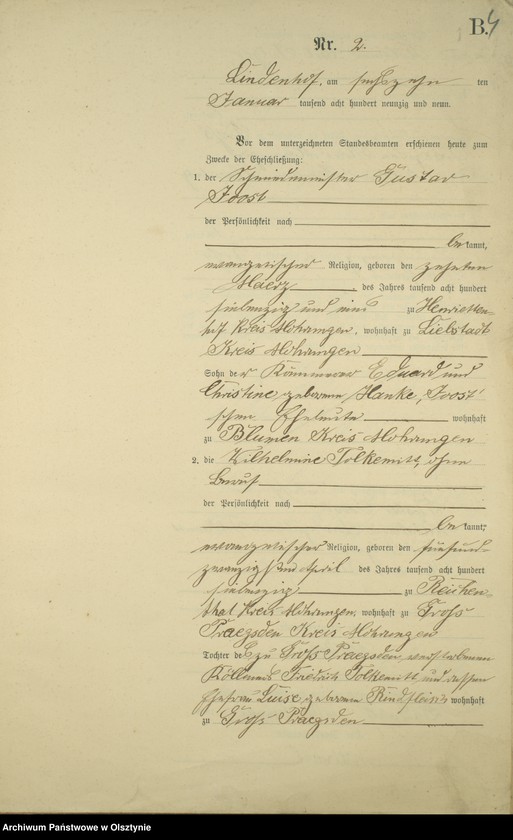 B. 4
Nr. 2.
Lindenhof, am sechszehn ten
Januar tausend acht hundert neunzig und neun.
Vor dem unterzeichneten Standesbeamten erschienen heute zum
Zwecke der Eheschließung:
1. der Schmiedemeister Gustav
Joost
der Persönlichkeit nach
be kannt,
evangelischer Religion, geboren den zehnten
Maerz, des Jahres tausend acht hundert
siebenzig und eins zu Henrietten-
hof Kreis Mohrungen, wohnhaft zu Liebstadt
Kreis Mohrungen
Sohn der Kämmerer Eduard und
Christine, geborene Hanke, Joost'
schen Eheleute wohnhaft
zu Blumen Kreis Mohrungen
2. die Wilhelmine Tolkemitt, ohne
Beruf
der Persönlichkeit nach
be kannt,
evangelischer Religion, geboren den fünfund-
zwanzigsten April des Jahres tausend acht hundert
siebenzig zu Reichen-
thal Kreis Mohrungen, wohnhaft zu Gross
Praegsden Kreis Mohrungen
Tochter des zu Gross Praegsden verstorbenen
Köllmers Friedrich Tolkemitt und dessen
Ehefrau Luise, geborene Rindfleisch wohnhaft
zu Gross Praegsden
Archiwum Państwowe w Olsztynie